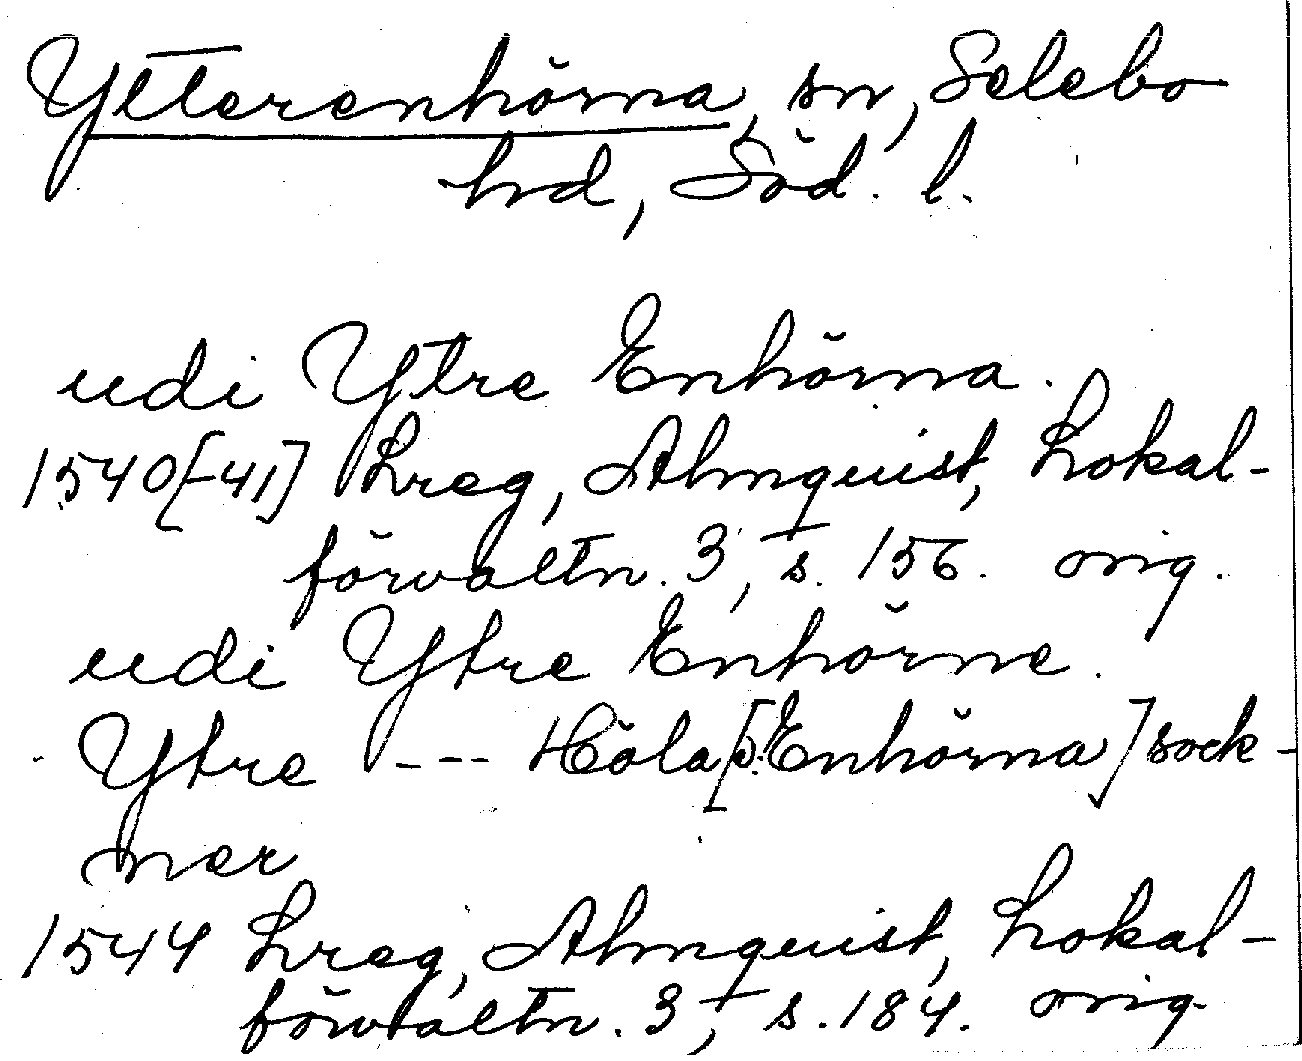 Ytterenhörna, sn, Selebo
hd, Söd. l.
udi Ytre Enhörna.
1540[-41] Lreg, Almquist, Lokal-
förvaltn. 3, s. 156. orig.
udi Ytre Enhörne.
Ytre --- Höla [o: Enhörna] sock-
ner
1544 Lreg, Almquist, Lokal-
förvaltn. 3, s. 184. orig.